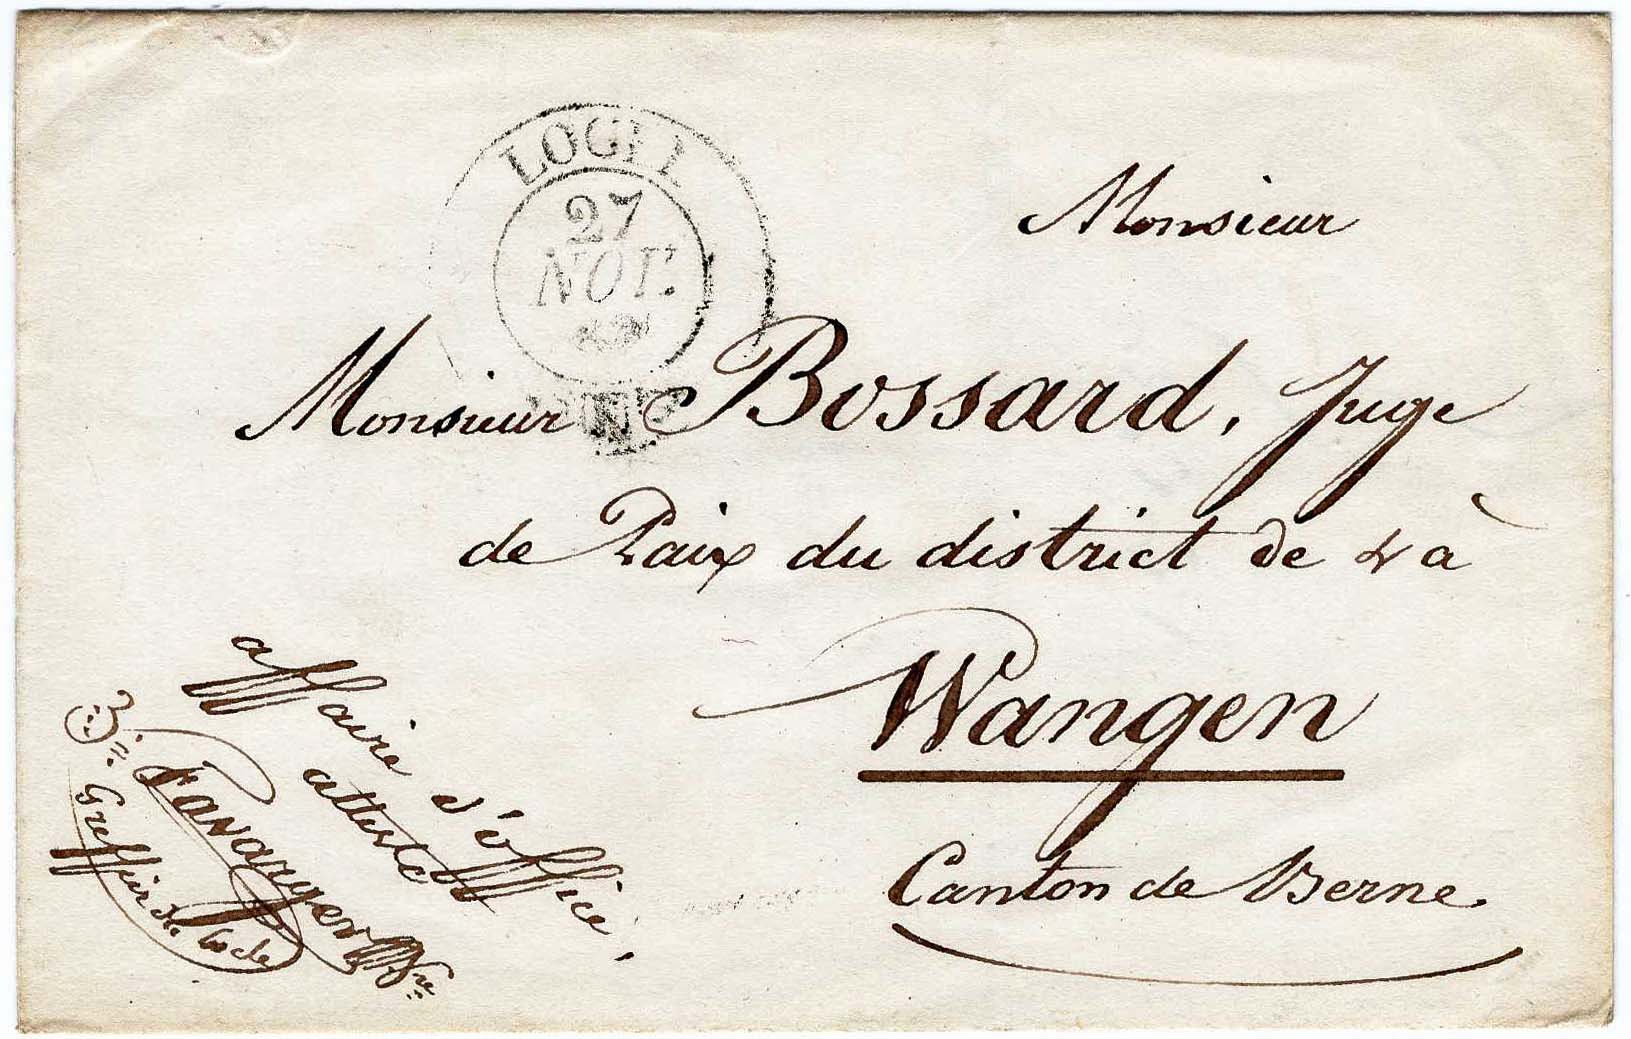 LOCLE
27
NOV.
Monsieur
Monsieur Bossard, Juge
de Paix du district de & à
Wangen
Canton de Berne.
affaire d'office,
atteste
Favarger Nre
Greffier du Locle